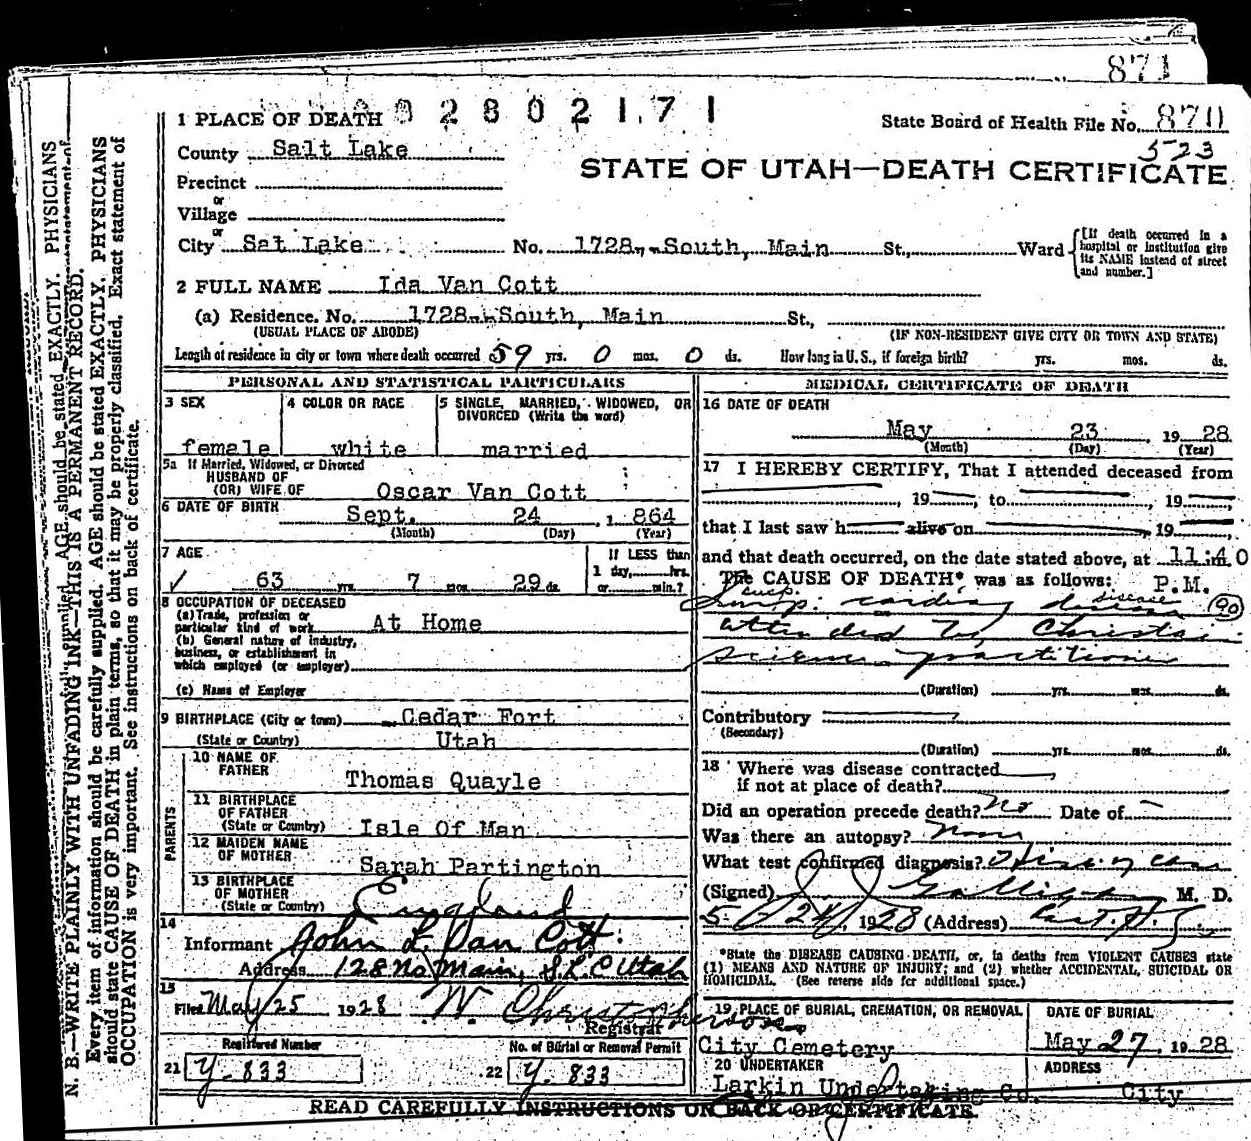 871
1 PLACE OF DEATH 02802171
State Board of Health File No. 870
523
County Salt Lake
STATE OF UTAH—DEATH CERTIFICATE
Precinct
or
Village
or
City Sat Lake No. 1728 South, Main St., Ward
[If death occurred in a hospital or institution give its NAME instead of street and number.]
2 FULL NAME Ida Van Cott
(a) Residence. No. 1728 South, Main St.,
(USUAL PLACE OF ABODE) (IF NON-RESIDENT GIVE CITY OR TOWN AND STATE)
Length of residence in city or town where death occurred 59 yrs. 0 mos. 0 ds. How long in U. S., if foreign birth? yrs. mos. ds.
PERSONAL AND STATISTICAL PARTICULARS
3 SEX
female
4 COLOR OR RACE
white
5 SINGLE, MARRIED, WIDOWED, OR
DIVORCED (Write the word)
married
5a If Married, Widowed, or Divorced
HUSBAND OF
(OR) WIFE OF Oscar Van Cott
6 DATE OF BIRTH Sept. 24, 1864
(Month) (Day) (Year)
7 AGE
63 yrs. 7 mos. 29 ds.
If LESS than
1 day, hrs.
or min.?
8 OCCUPATION OF DECEASED
(a) Trade, profession or
particular kind of work At Home
(b) General nature of industry,
business, or establishment in
which employed (or employer)
(c) Name of Employer
9 BIRTHPLACE (City or town) Cedar Fort
(State or Country) Utah
PARENTS
10 NAME OF
FATHER Thomas Quayle
11 BIRTHPLACE
OF FATHER
(State or Country) Isle Of Man
12 MAIDEN NAME
OF MOTHER Sarah Partington
13 BIRTHPLACE
OF MOTHER
(State or Country) England
14
Informant John L. Van Cott.
Address 128 No Main, S.L.C Utah
15
Filed May 25 1928 W. Christopherson
Registrar
Registered Number
21 Y-833
No. of Burial or Removal Permit
22 Y. 833
MEDICAL CERTIFICATE OF DEATH
16 DATE OF DEATH
May 23, 1928
(Month) (Day) (Year)
17 I HEREBY CERTIFY, That I attended deceased from
, 19 , to , 19 ,
that I last saw h alive on , 19 ,
and that death occurred, on the date stated above, at 11:40 m.
The CAUSE OF DEATH* was as follows: P.M.
cardiac disease 90
attended by Christain
science practitioner
(Duration) yrs. mos. ds.
Contributory
(Secondary)
(Duration) yrs. mos. ds.
18 Where was disease contracted
if not at place of death?
Did an operation precede death? No Date of —
Was there an autopsy?
What test confirmed diagnosis? History case
(Signed) Galligan M. D.
5/24, 1928 (Address)
*State the DISEASE CAUSING DEATH, or, in deaths from VIOLENT CAUSES state
(1) MEANS AND NATURE OF INJURY; and (2) whether ACCIDENTAL, SUICIDAL OR
HOMICIDAL. (See reverse side for additional space.)
19 PLACE OF BURIAL, CREMATION, OR REMOVAL
City Cemetery
DATE OF BURIAL
May 27, 1928
20 UNDERTAKER
Larkin Undertaking Co.
ADDRESS
City
READ CAREFULLY INSTRUCTIONS ON BACK OF CERTIFICATE.
N. B.—WRITE PLAINLY WITH UNFADING INK—THIS IS A PERMANENT RECORD.
Every item of information should be carefully supplied. AGE should be stated EXACTLY. PHYSICIANS
should state CAUSE OF DEATH in plain terms, so that it may be properly classified. Exact statement of
OCCUPATION is very important. See instructions on back of certificate.